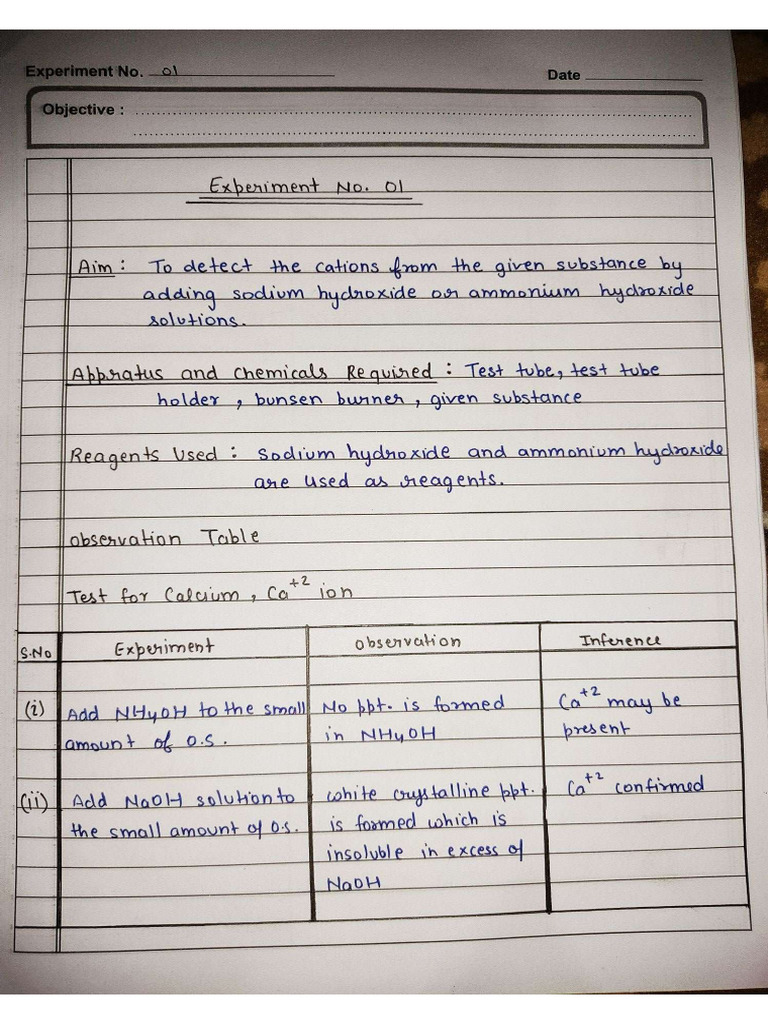 Experiment No. 01 Date
Objective :
Experiment No. 01
Aim : To detect the cations from the given substance by
adding sodium hydroxide or ammonium hydroxide
solutions.
Appratus and Chemicals Required : Test tube, test tube
holder , bunsen burner , given substance
Reagents Used : Sodium hydroxide and ammonium hydroxide
are used as reagents.
Observation Table
Test for Calcium , Ca+2 ion
S.No Experiment Observation Inference
(i) Add NH4OH to the small No ppt. is formed Ca+2 may be
amount of O.S. in NH4OH present
(ii) Add NaOH solution to White crystalline ppt. Ca+2 confirmed
the small amount of O.S. is formed which is
insoluble in excess of
NaOH